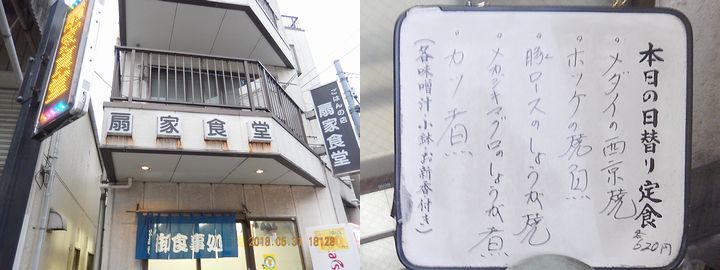 扇家食堂
ごはんの店
扇家食堂
御食事処
2018.05.31 18:28
本日の日替り定食
各620円
・メダイの西京焼
・ホッケの焼魚
・豚ロースのしょうが焼
・メカジキマグロのしょうが煮
・カツ煮
(各味噌汁 小鉢お新香付き)